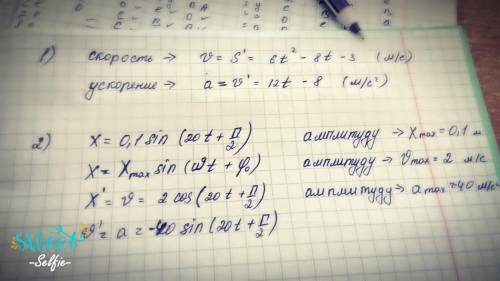 1) скорость → v = S' = 6t² - 8t - 3 (м/с)
ускорение → a = v' = 12t - 8 (м/с²)
2) X = 0,1 sin (20t + П/2) амплитуду → Xmax = 0,1 м
X = Xmax sin (ωt + φ₀) амплитуду → vmax = 2 м/с
X' = v = 2 cos (20t + П/2) амплитуду → amax = 40 м/с²
v' = a = -40 sin (20t + П/2)
Sweet
-Selfie-